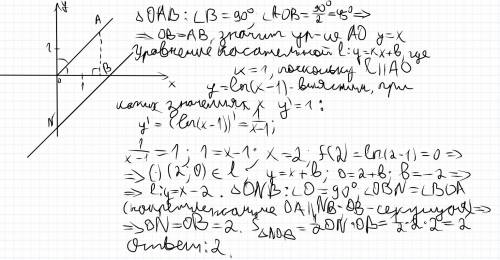 y
A
1
B
0
1
x
N
ΔOAB: ∠B = 90° ∠AOB = 90°/2 = 45° ⇒
⇒ OB = AB, значит ур-ие AO y = x
Уравнение касательной l: y = kx + b, где
k = 1, поскольку l || AO
y = ln(x-1) - выясним, при
каких значениях x y' = 1:
y' = (ln(x-1))' = 1/(x-1);
1/(x-1) = 1; 1 = x-1; x = 2; f(2) = ln(2-1) = 0 ⇒
⇒ (·) (2; 0) ∈ l y = x + b; 0 = 2 + b; b = -2 ⇒
⇒ l: y = x - 2. ΔONB: ∠O = 90° ∠OBN = ∠BOA
(накрест лежащие OA || NB OB - секущая) ⇒
⇒ ON = OB = 2. S = 1/2 ON · OB = 1/2 · 2 · 2 = 2
Ответ: 2.